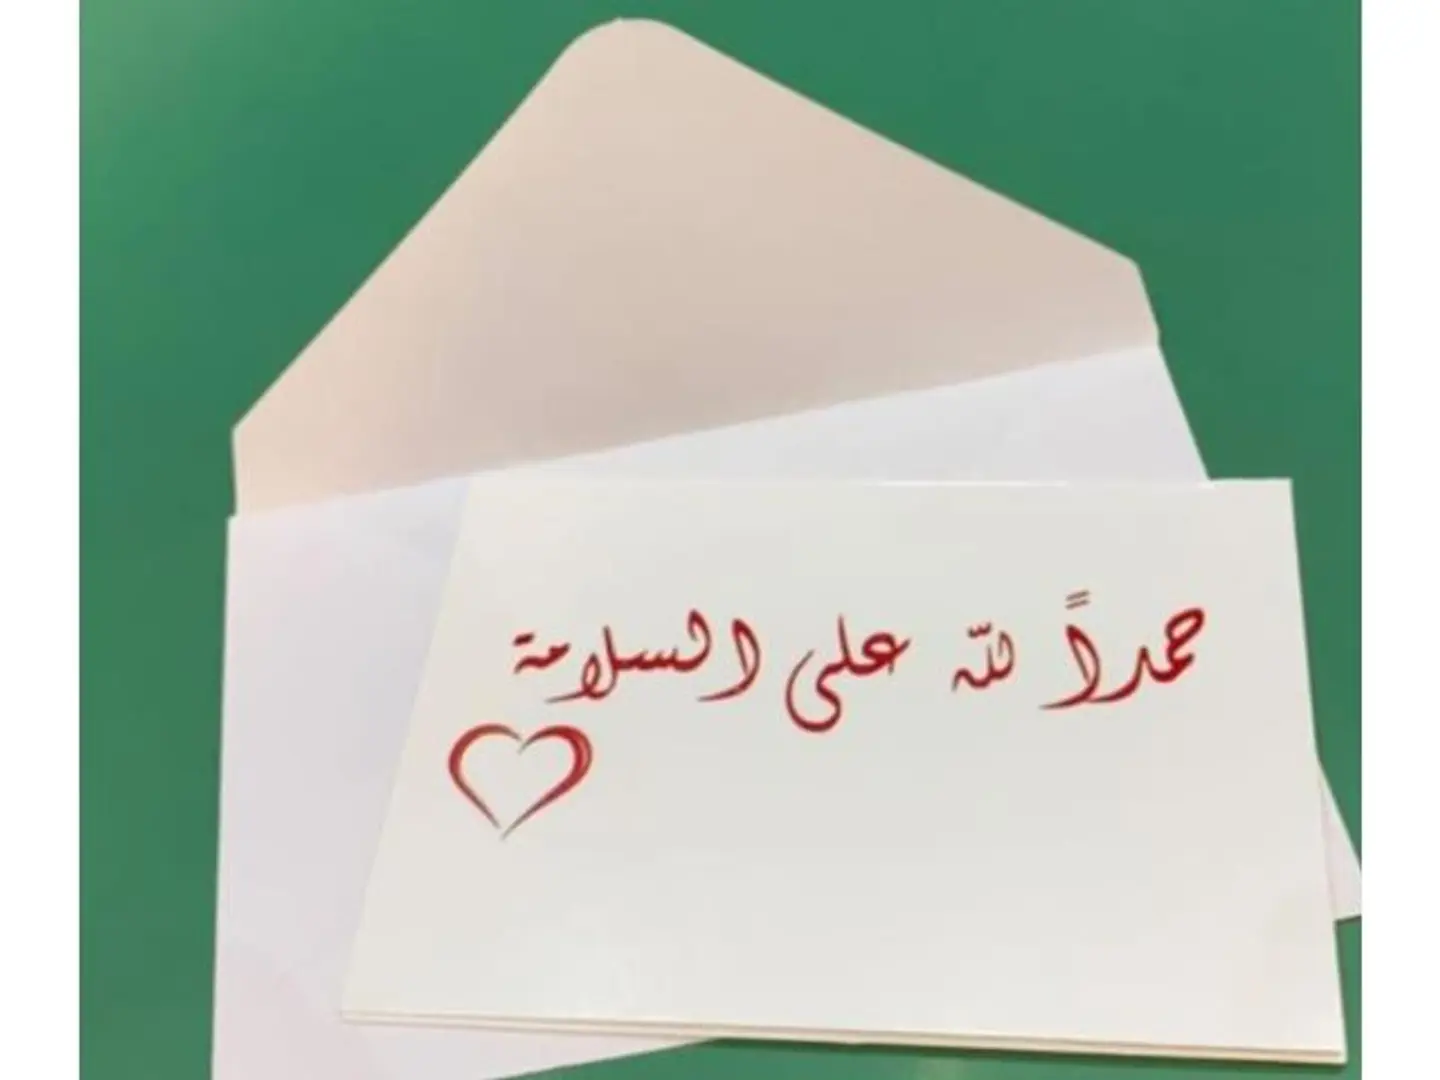 حمداً لله على السلامة